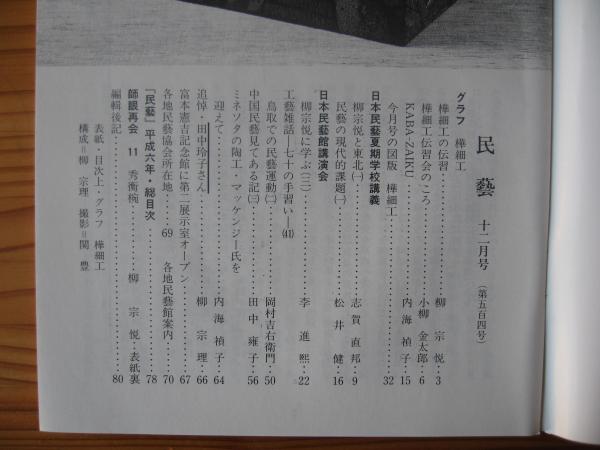 民藝 十二月号 (第五百四号)
グラフ 樺細工
樺細工の伝習……柳宗悦…3
樺細工伝習会のころ……小柳金太郎…6
KABA-ZAIKU……内海禎子…15
今月号の図版 樺細工……32
日本民藝夏期学校講義
柳宗悦と東北(一)……志賀直邦…9
民藝の現代的課題(一)……松井健…16
日本民藝館講演会
柳宗悦に学ぶ(三)……李進熙…22
工藝雑話―七十の手習い―(41)
鳥取での民藝運動(二)……岡村吉右衛門…50
中国民藝見てある記(三)……田中雍子…56
ミネソタの陶工・マッケンジー氏を
迎えて……内海禎子…64
追悼・田中玲子さん……柳宗理…66
富本憲吉記念館に第二展示室オープン……67
各地民藝協会所在地……69 各地民藝館案内……70
『民藝』平成六年・総目次……78
師眼再会 11 秀衡椀……柳宗悦…表紙裏
編輯後記……80
表紙・目次上・グラフ 樺細工
構成=柳宗理 撮影=関豊